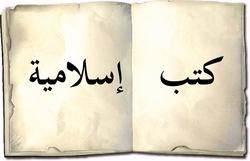 كتب إسلامية